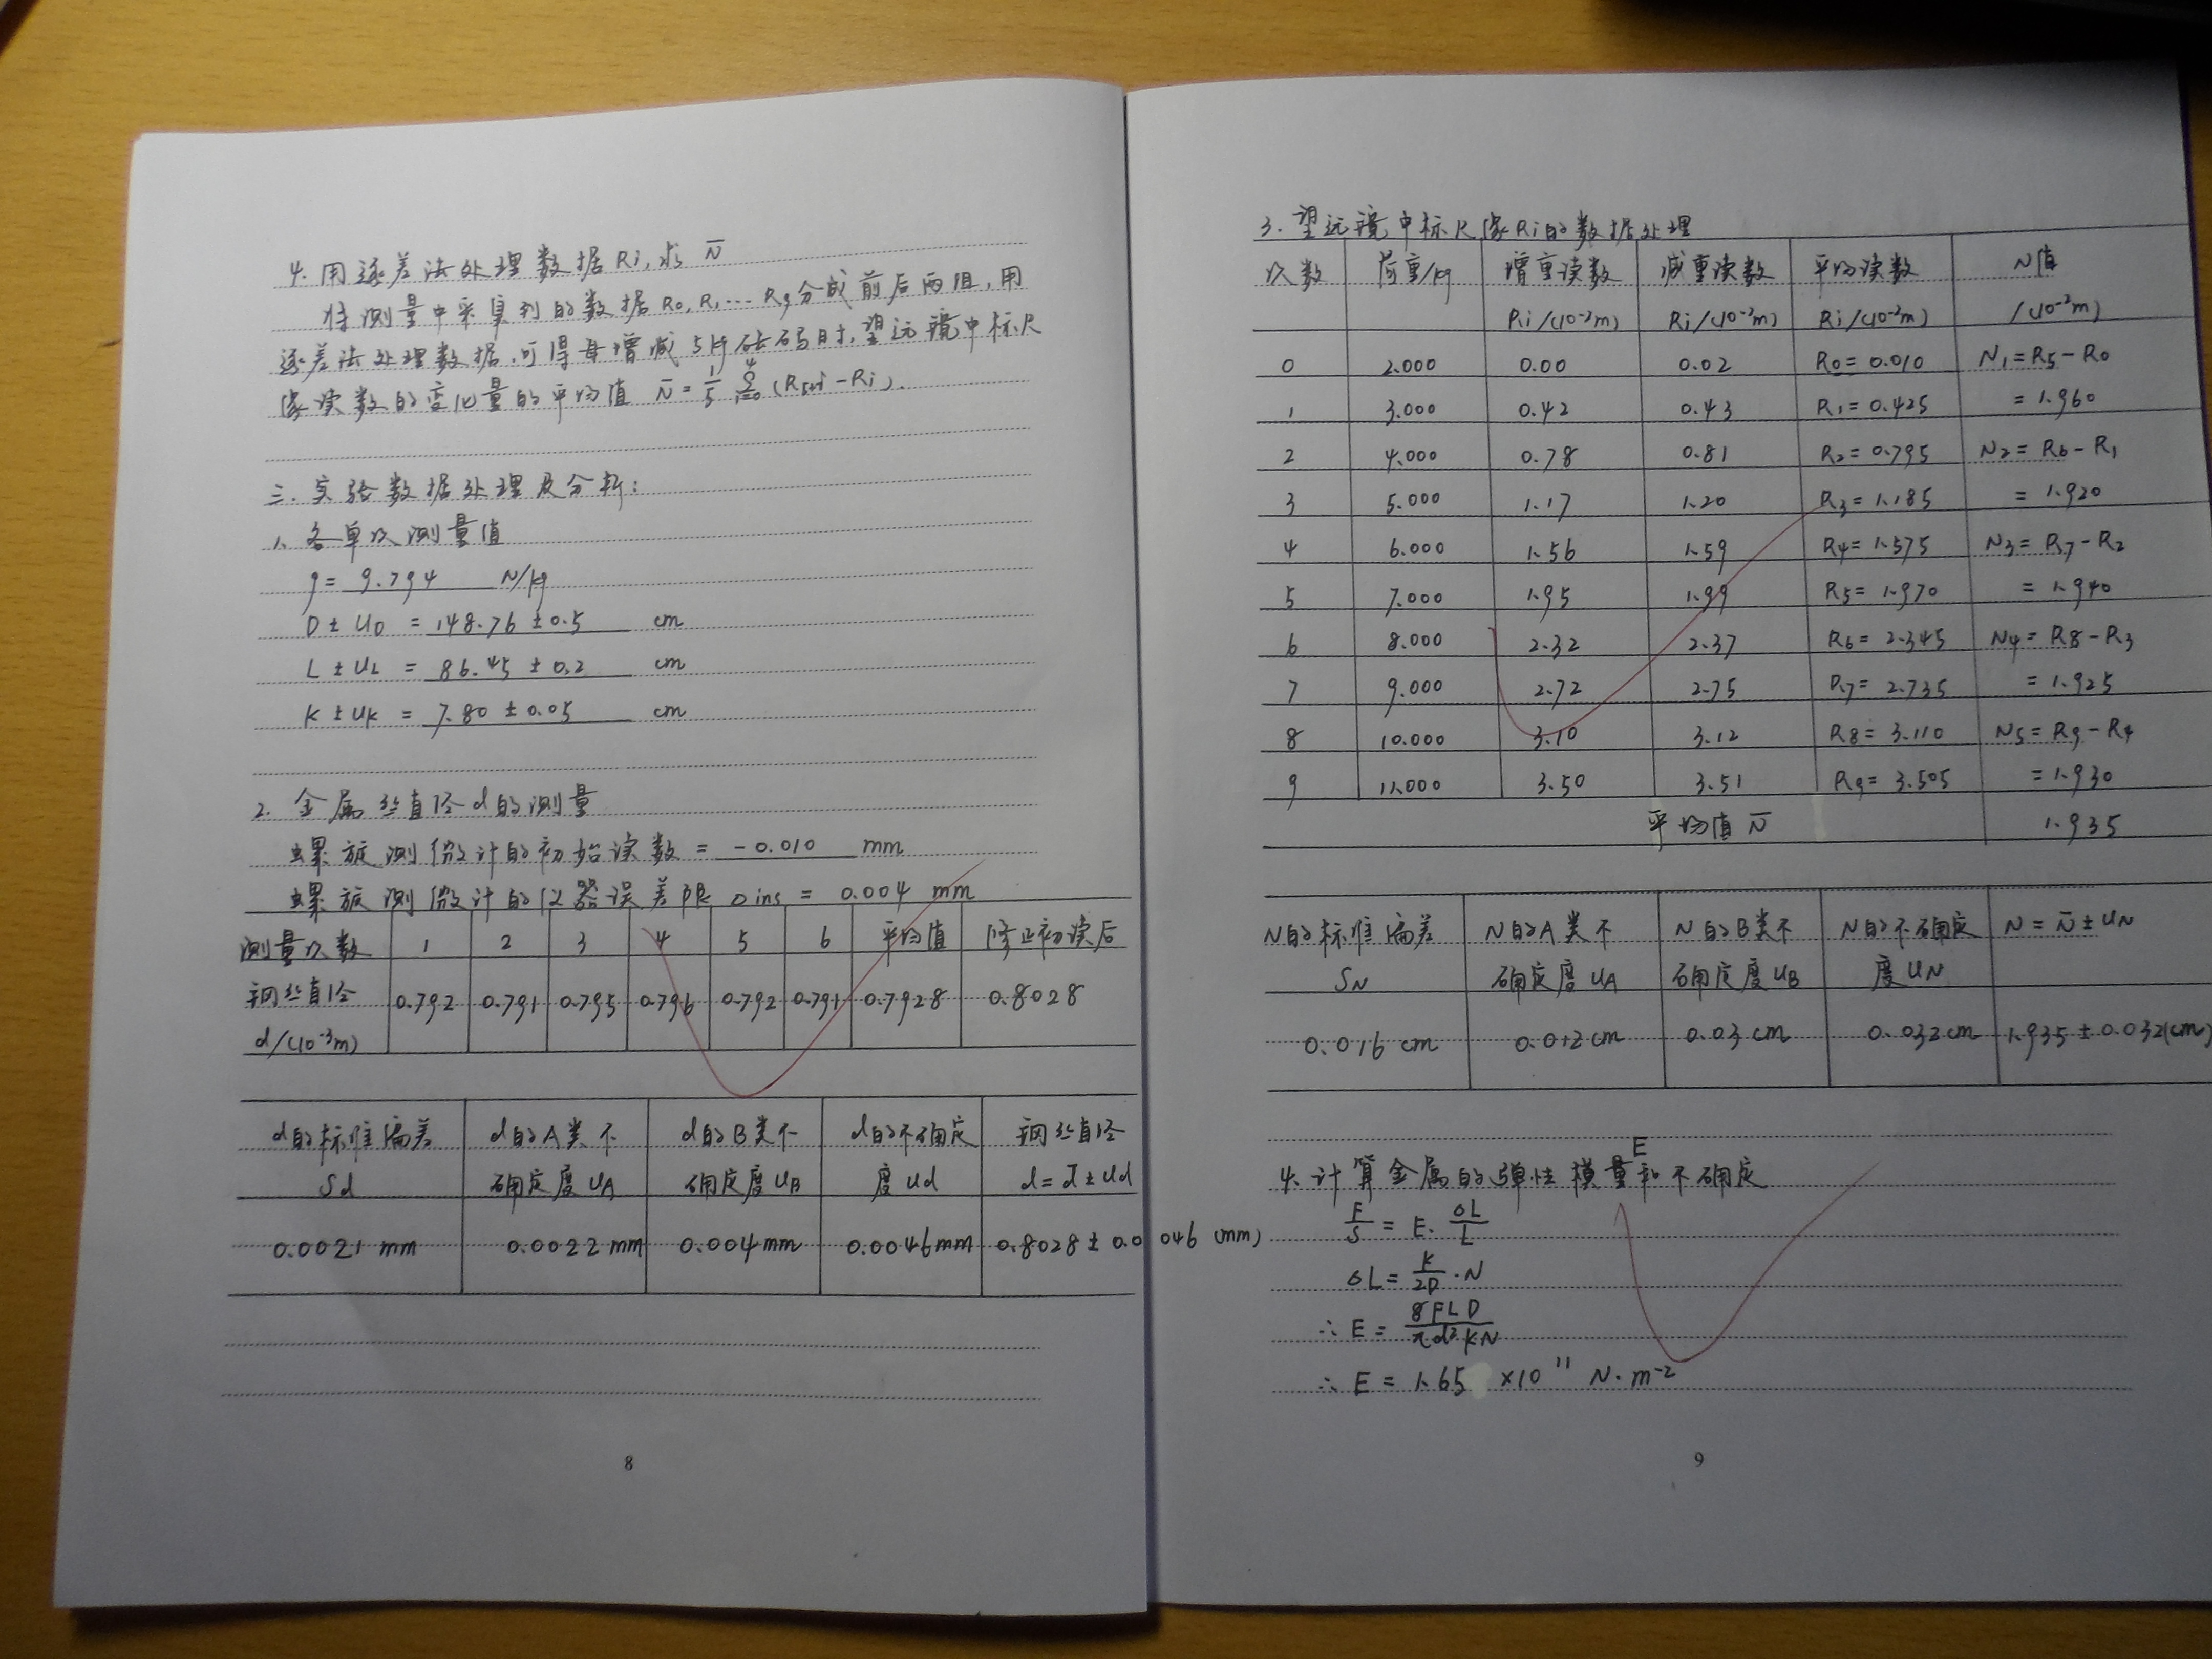 4. 用逐差法处理数据Ri,求 N̄
将测量中采集到的数据R₀,R₁…R₉分成前后两组,用
逐差法处理数据,可得每增减5kg砝码时,望远镜中标尺
像读数的变化量的平均值 N̄=1/5 Σ⁴ᵢ₌₀(R₅₊ᵢ-Rᵢ).
三. 实验数据处理及分析:
1. 各单次测量值
g= 9.794 N/kg
D±U_D = 148.76±0.5 cm
L±U_L = 86.45±0.2 cm
K±U_K = 7.80±0.05 cm
2. 金属丝直径d的测量
螺旋测微计的初始读数 = -0.010 mm
螺旋测微计的仪器误差限 Δins = 0.004 mm
测量次数 1 2 3 4 5 6 平均值 修正初读后
钢丝直径 0.792 0.791 0.795 0.796 0.792 0.791 0.7928 0.8028
d/(10⁻³m)
d的标准偏差 d的A类不 d的B类不 d的不确定 钢丝直径
Sd 确定度U_A 确定度U_B 度Ud d=d̄±Ud
0.0021 mm 0.0022 mm 0.004mm 0.0046mm 0.8028±0.0046 (mm)
8
3. 望远镜中标尺像Ri的数据处理
次数 荷重/kg 增重读数 减重读数 平均读数 N值
Ri/(10⁻²m) Ri/(10⁻²m) Ri/(10⁻²m) /(10⁻²m)
0 2.000 0.00 0.02 R₀=0.010 N₁=R₅-R₀
1 3.000 0.42 0.43 R₁=0.425 =1.960
2 4.000 0.78 0.81 R₂=0.795 N₂=R₆-R₁
3 5.000 1.17 1.20 R₃=1.185 =1.920
4 6.000 1.56 1.59 R₄=1.575 N₃=R₇-R₂
5 7.000 1.95 1.99 R₅=1.970 =1.940
6 8.000 2.32 2.37 R₆=2.345 N₄=R₈-R₃
7 9.000 2.72 2.75 R₇=2.735 =1.925
8 10.000 3.10 3.12 R₈=3.110 N₅=R₉-R₄
9 11.000 3.50 3.51 R₉=3.505 =1.930
平均值N̄ 1.935
N的标准偏差 N的A类不 N的B类不 N的不确定 N=N̄±U_N
S_N 确定度U_A 确定度U_B 度U_N
0.016 cm 0.012cm 0.03 cm 0.032cm 1.935±0.032(cm)
4. 计算金属的弹性模量E和不确定
F/S = E·ΔL/L
ΔL = K/2D·N
∴ E = 8FLD/πd²KN
∴ E = 1.65 ×10¹¹ N·m⁻²
9